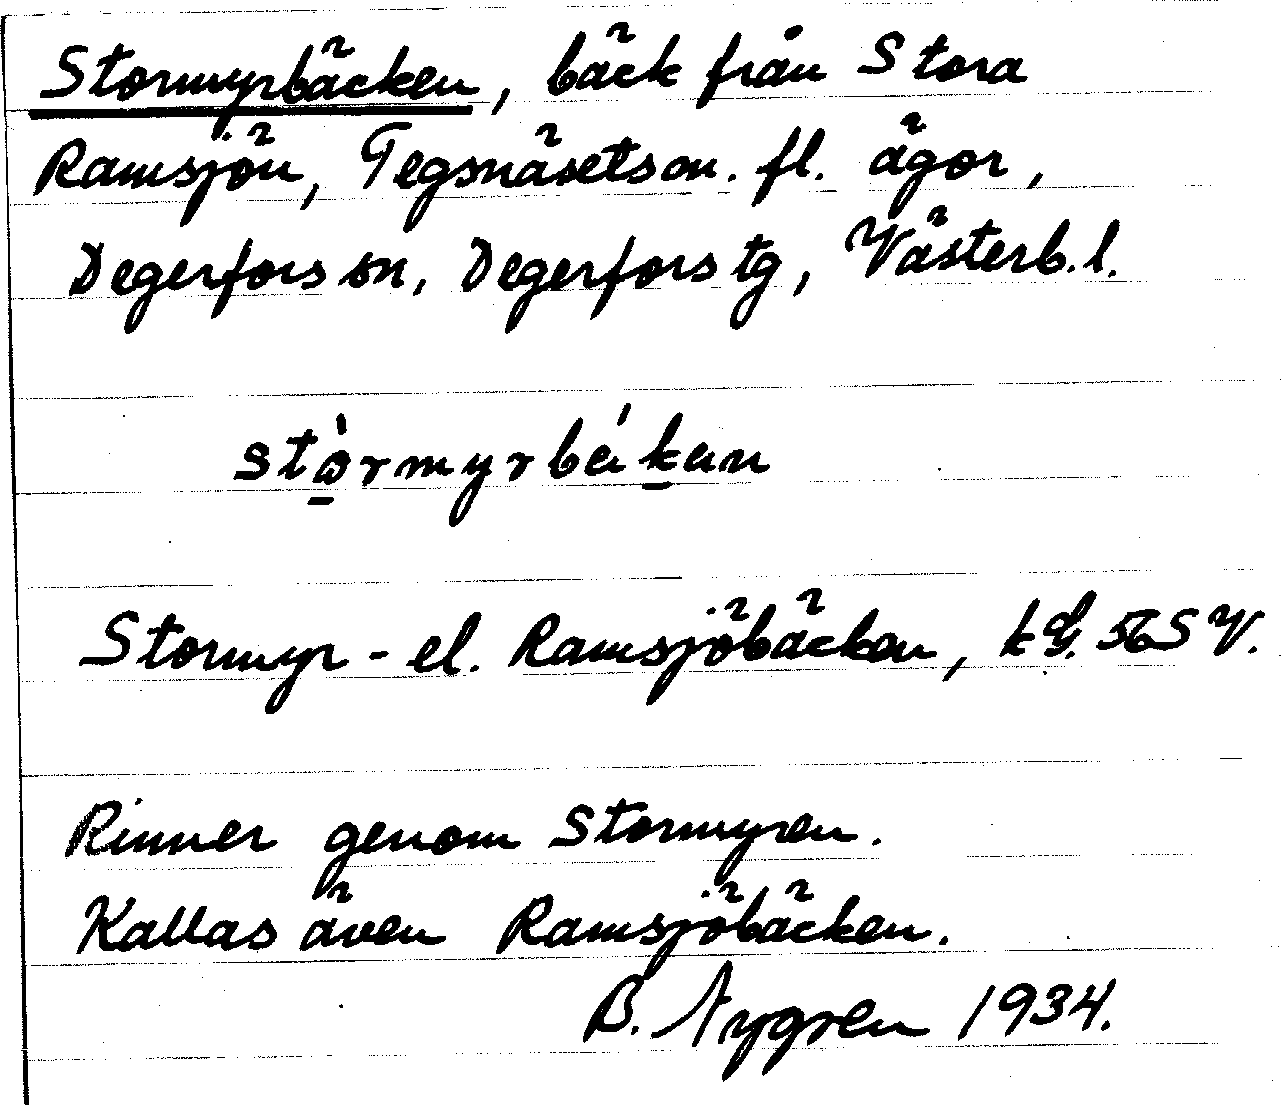 Stormyrbäcken, bäck från Stora
Ramsjön, Tegsnäset s o m. fl. ägor,
Degerfors sn, Degerfors tg, Västerb. l.
Stormyr- el. Ramsjöbäcken, 56 SV.
Rinner genom Stormyren.
Kallas även Ramsjöbäcken.
B. Nygren 1934.